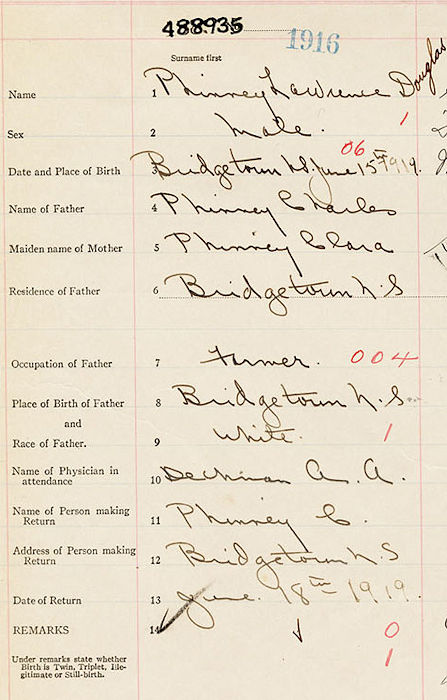 488935
1916
Surname first
Name 1 Phinney Lawrence Douglas
Sex 2 Male. 1
06
Date and Place of Birth 3 Bridgetown N.S. June 15th 1919.
Name of Father 4 Phinney Charles
Maiden name of Mother 5 Phinney Clara
Residence of Father 6 Bridgetown N.S
Occupation of Father 7 Farmer. 004
Place of Birth of Father 8 Bridgetown N.S.
and
Race of Father. 9 White. 1
Name of Physician in
attendance 10 Dechman A. A.
Name of Person making
Return 11 Phinney C.
Address of Person making
Return 12 Bridgetown N.S
Date of Return 13 June. 18th 1919.
REMARKS 14 0
Under remarks state whether
Birth is Twin, Triplet, Ille-
gitimate or Still-birth. 1